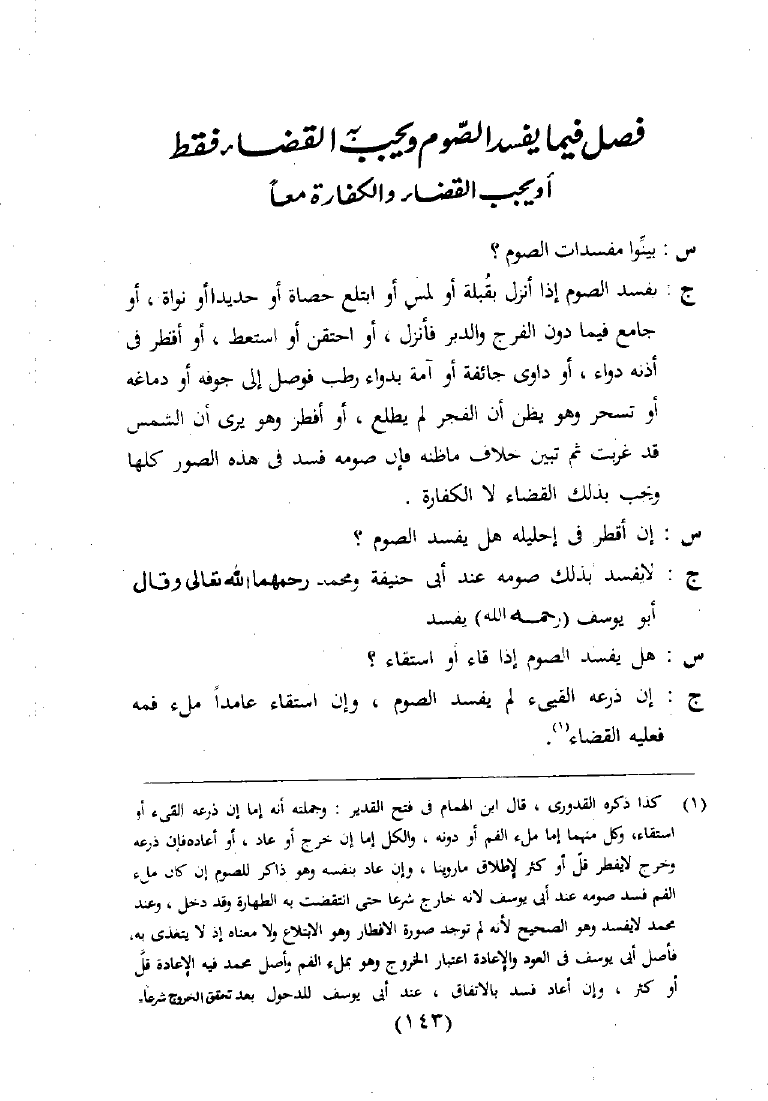 فصل فيما يفسد الصّوم ويجب به القضاء فقط
أو يجب القضاء والكفارة معاً
س : بينِّوا مفسدات الصوم ؟
ج : يفسد الصوم إذا أنزل بقُبلة أو لمس أو ابتلع حصاة أو حديدا أو نواة ، أو
جامع فيما دون الفرج والدبر فأنزل ، أو احتقن أو استعط ، أو أفطر فى
أذنه دواء ، أو داوى جائفة أو آمة بدواء رطب فوصل إلى جوفه أو دماغه
أو تسحر وهو يظن أن الفجر لم يطلع ، أو أفطر وهو يرى أن الشمس
قد غربت ثم تبين خلاف ماظنه فإن صومه فسد فى هذه الصور كلها
ويجب بذلك القضاء لا الكفارة .
س : إن أقطر فى إحليله هل يفسد الصوم ؟
ج : لايفسد بذلك صومه عند أبى حنيفة ومحمد رحمهما الله تعالى وقال
أبو يوسف (رحمه الله) يفسد
س : هل يفسد الصوم إذا قاء أو استقاء ؟
ج : إن ذرعه القيىء لم يفسد الصوم ، وإن استقاء عامداً ملء فمه
فعليه القضاء(١).
(١) كذا ذكره القدورى ، قال ابن الهمام فى فتح القدير : وجملته أنه إما إن ذرعه القىء أو
استقاء، وكل منهما إما ملء الفم أو دونه ، والكل إما إن خرج أو عاد ، أو أعاده فإن ذرعه
وخرج لايفطر قلّ أو كثر لإطلاق ماروينا ، وإن عاد بنفسه وهو ذاكر للصوم إن كان ملء
الفم فسد صومه عند أبى يوسف لانه خارج شرعا حتى انتقضت به الطهارة وقد دخل ، وعند
محمد لايفسد وهو الصحيح لأنه لم توجد صورة الافطار وهو الابتلاع ولا معناه إذ لا يتغذى به.
فأصل أبى يوسف فى العود والإعادة اعتبار الخروج وهو بملء الفم وأصل محمد فيه الإعادة قلَّ
أو كثر ، وإن أعاد فسد بالاتفاق ، عند أبى يوسف للدحول بعد تحقق الخروج شرعا.
(١٤٣)